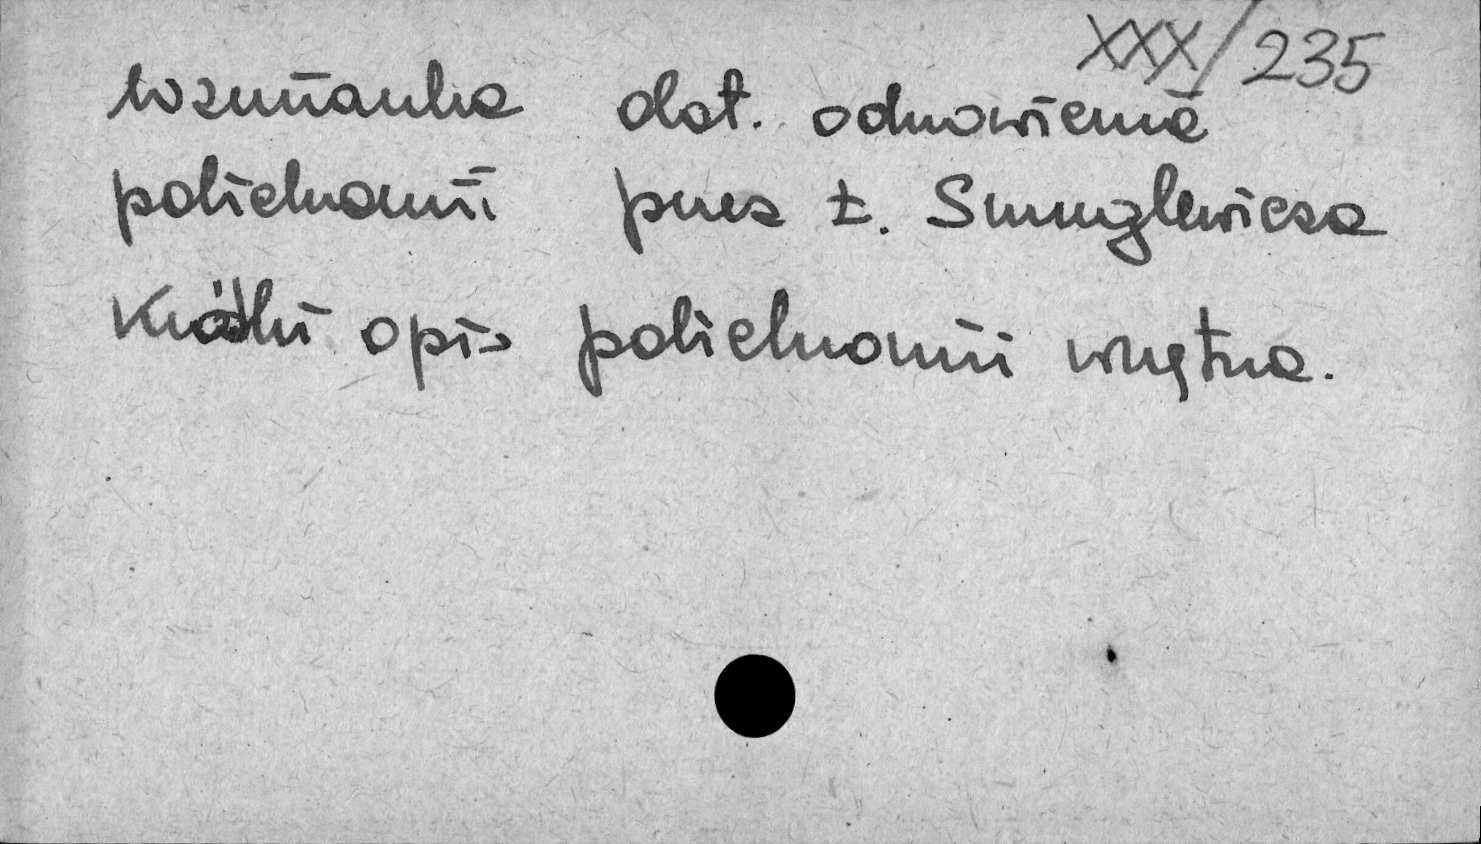 XXX/235
wzmianka dot. odnowienia
polichromii przez Ł. Smuglewicza
Krótki opis polichromii wnętrza.